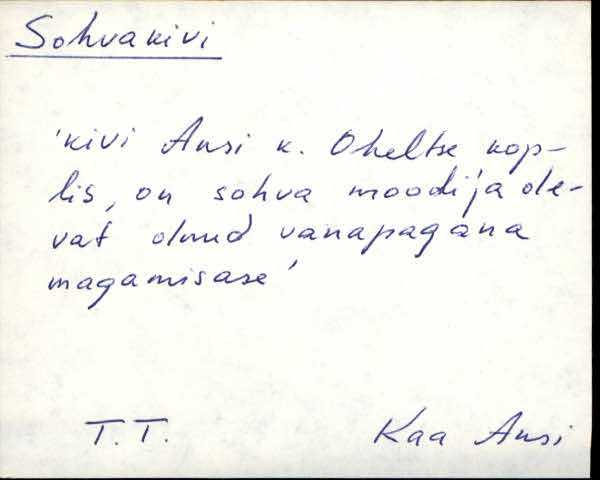 Sohvakivi
'kivi Ansi k. Oheltse kop-
lis, on sohva moodi ja ole-
vat olnud vanapagana
magamisase'
T.T. Kaa Ansi